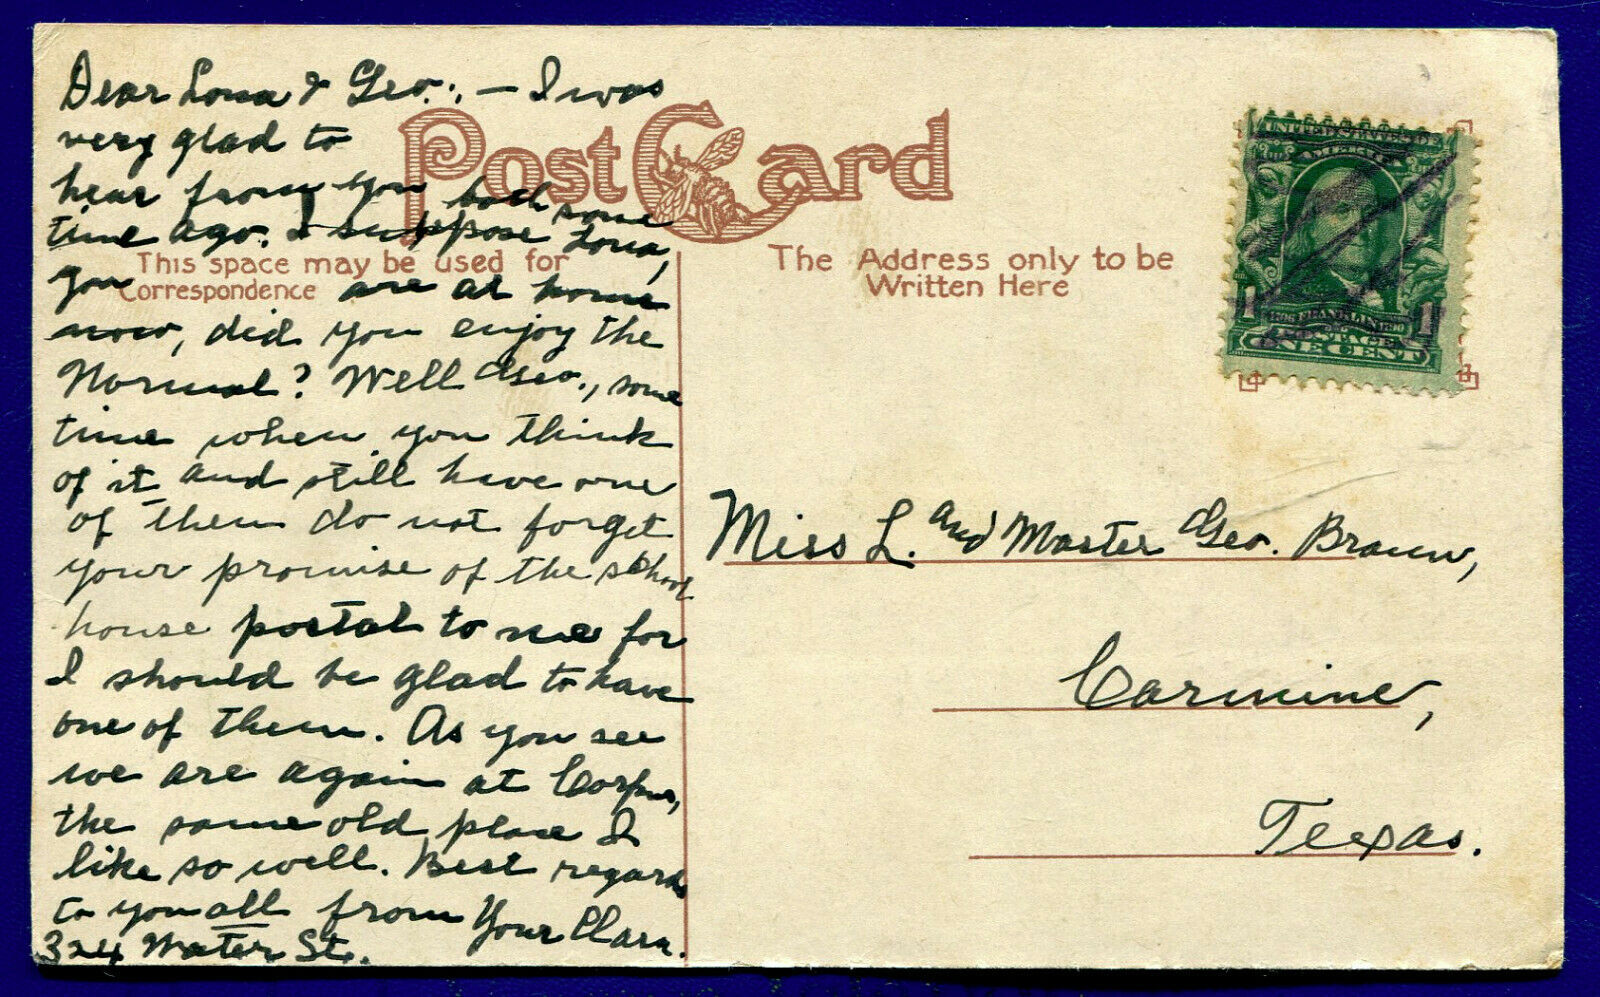 Dear Lona & Geo.:, — I was
very glad to
hear from you both some
time ago. I suppose Lona,
you are at home
now, did you enjoy the
Normal? Well Geo., some
time when you think
of it and still have one
of them do not forget
your promise of the school
house postal to me for
I should be glad to have
one of them. As you see
we are again at Corpus,
the same old place I
like so well. Best regards
to you all from Your Clara.
324 Water St.
Post Card
This space may be used for
Correspondence
The Address only to be
Written Here
UNITED STATES OF
AMERICA
1 1
POSTAGE
ONE CENT
Miss L. and Master Geo. Braun,
Carmine,
Texas.